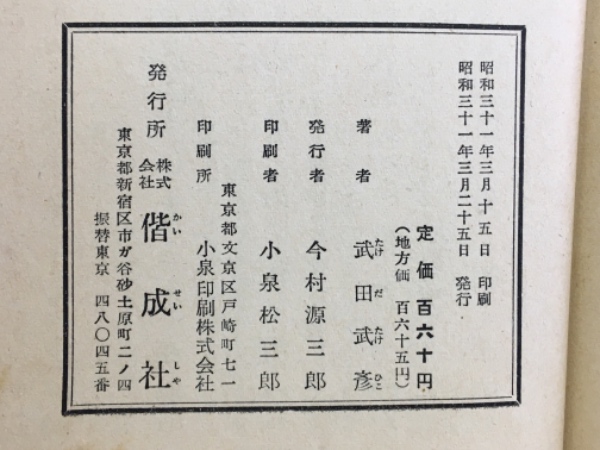 昭和三十一年三月十五日 印刷
昭和三十一年三月二十五日 発行
定価百六十円
（地方価 百六十五円）
著者 武田武彦
たけ だ たけ ひこ
発行者 今村源三郎
印刷者 小泉松三郎
東京都文京区戸崎町七一
印刷所 小泉印刷株式会社
発行所 株式会社 偕成社
かい せい しや
東京都新宿区市ガ谷砂土原町二ノ四
振替東京 四八〇四五番